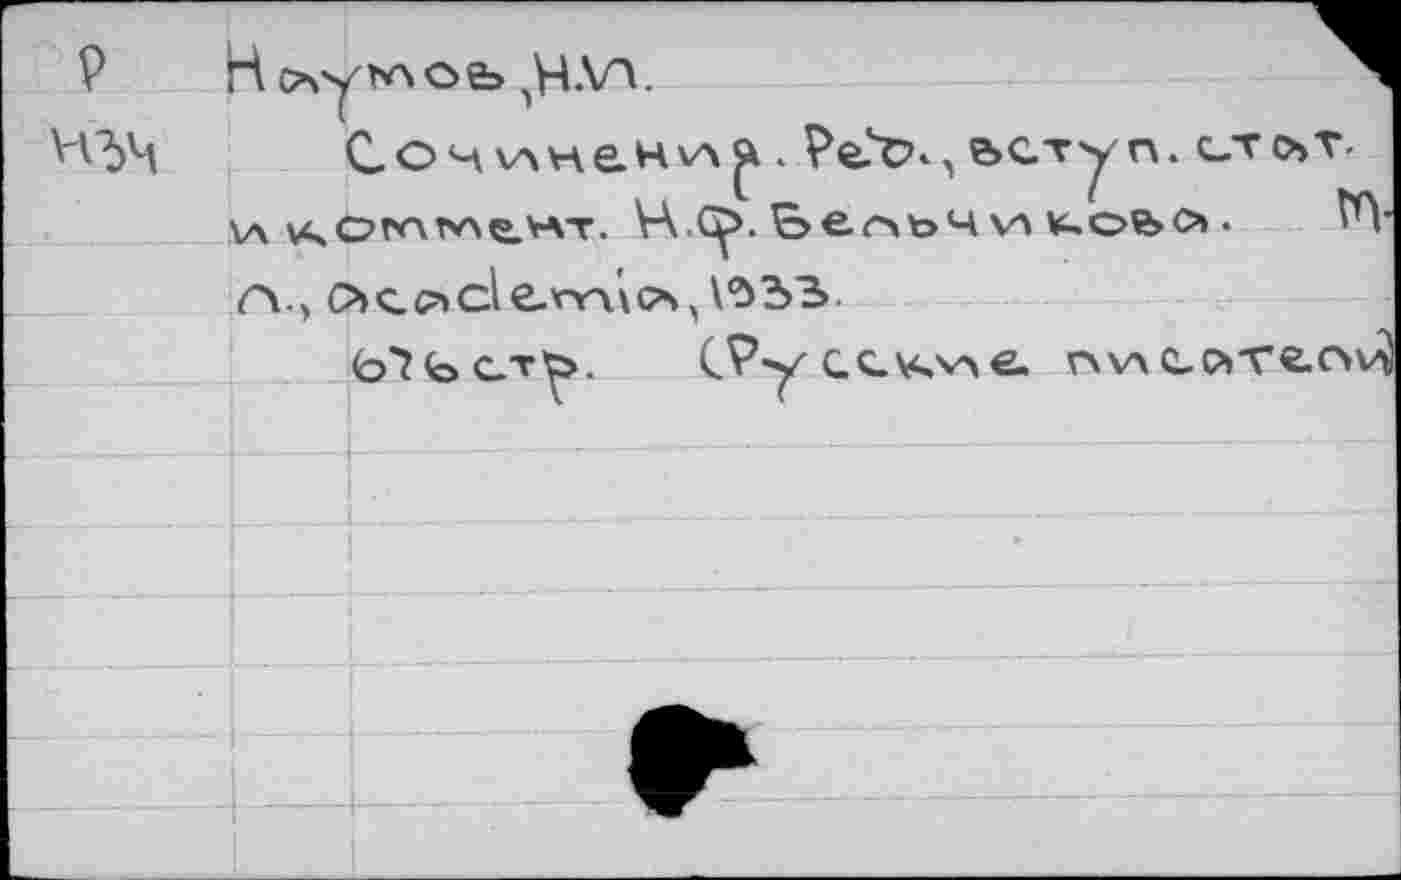 Р Наумов, Н.И.
Н34 Сочинения. Ред., вступ. стат.
и коммент. Н.Ф. Бельчикова. М-
Л., Academia, 1933.
676 стр. (Русские писатели)